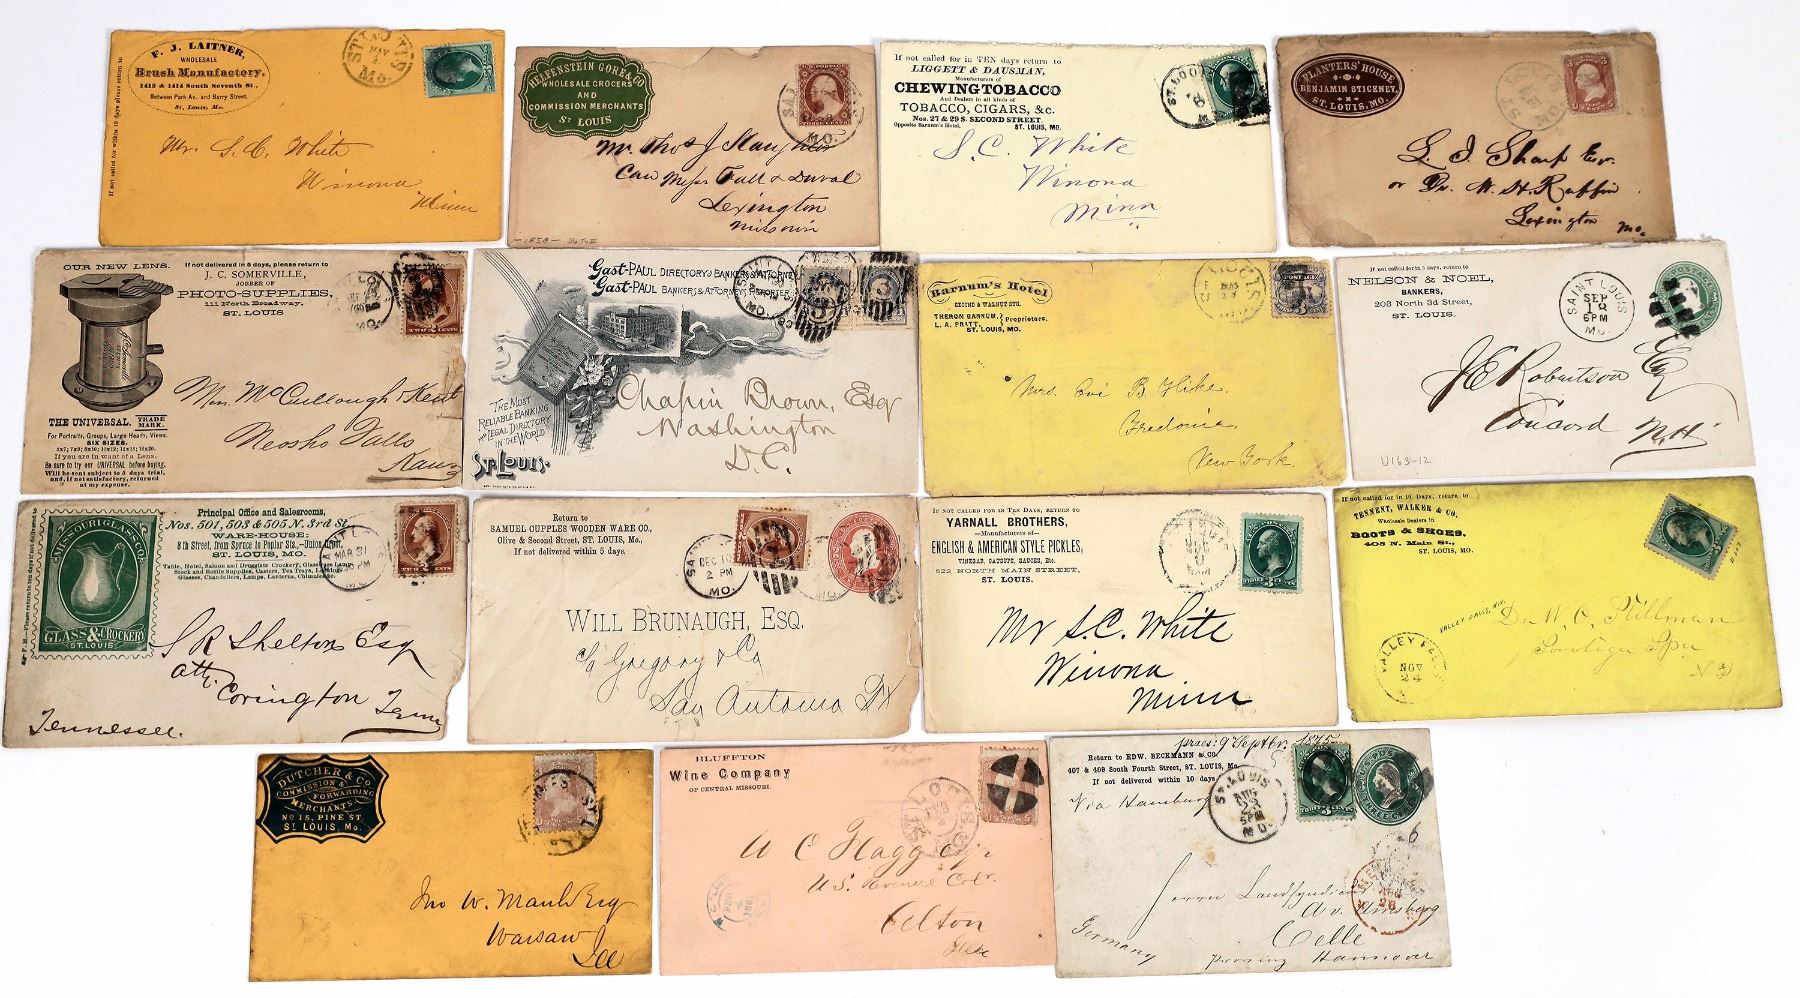 F. J. LAITNER,
WHOLESALE
Brush Manufactory.
1412 & 1414 South Seventh St.,
Between Park Av., and Barry Street,
St. Louis, Mo.
If not called for within 10 days please return to
ST. LOUIS
MAY
MO.
Mr. S. C. White
Winona
Minn
HELFENSTEIN GORE & CO
WHOLESALE GROCERS
AND
COMMISSION MERCHANTS
ST LOUIS
MO.
Mr Thos J Slaughter
Care Messrs Tull & Duval
Lexington
Missouri
-1858- 26 Ty II
If not called for in TEN days return to
LIGGETT & DAUSMAN,
Manufacturers of
CHEWING TOBACCO
And Dealers in all kinds of
TOBACCO, CIGARS, &c.
Nos. 27 & 29 S. SECOND STREET.
Opposite Barnum's Hotel, ST. LOUIS, MO.
S. C. White
Winona
Minn
PLANTERS' HOUSE,
BENJAMIN STICKNEY,
ST. LOUIS, MO.
L. J. Sharp Esr.
or Dr. W. H. Ruffin
Lexington Mo.
OUR NEW LENS.
THE UNIVERSAL. TRADE MARK.
For Portraits, Groups, Large Heads, Views.
SIX SIZES.
5x7; 7x9; 8x10; 10x12; 12x15; 16x20.
If you are in want of a Lens.
Be sure to try our UNIVERSAL before buying.
Will be sent subject to 5 days trial,
and, if not satisfactory, returned
at my expense.
If not delivered in 5 days, please return to
J. C. SOMERVILLE,
JOBBER OF
PHOTO-SUPPLIES,
111 North Broadway.
ST. LOUIS
TWO CENTS
Mrs. McCullough & Kent
Neosho Falls
Kans
Gast-PAUL DIRECTORY OF BANKERS & ATTORNEYS
Gast-PAUL BANKERS & ATTORNEYS REPORTER
THE MOST
RELIABLE BANKING
AND LEGAL DIRECTORY
IN THE WORLD
ST. LOUIS.
Chapin Brown, Esq
Washington
D.C.
Barnum's Hotel
SECOND & WALNUT STS.
THERON BARNUM,
L. A. PRATT, Proprietors,
ST. LOUIS, MO.
Mrs. Evi B. Hike.
Fredonia
New York.
If not called for in 5 days, return to
NELSON & NOEL,
BANKERS,
208 North 3d Street,
ST. LOUIS.
SAINT LOUIS
SEP
18
6PM
MO.
J E Robertson Esq
Concord N.H.
U163-12
MISSOURI GLASS CO.
GLASS & CROCKERY
ST. LOUIS
Principal Office and Salesrooms,
Nos. 501, 503 & 505 N. 3rd St.
WARE-HOUSE:
8th Street, from Spruce to Poplar Sts.,-Union Depot,
ST. LOUIS, MO.
Table, Hotel, Saloon and Druggists Crockery, Glassware, Lamps
Stock and Bottle Supplies, Casters, Tea Trays,
Glasses, Chandeliers, Lamps, Lanterns, Chimneys
MAR 31
S R Shelton Esq
atty
Covington Tenn
Tennessee.
Return to
SAMUEL CUPPLES WOODEN WARE CO.,
Olive & Second Street, ST. LOUIS, Mo.,
If not delivered within 5 days.
DEC 16
2 PM
MO.
WILL BRUNAUGH, ESQ.
c/o Gregory & Co
San Antonio TX
IF NOT CALLED FOR IN TEN DAYS, RETURN TO
YARNALL BROTHERS,
-Manufacturers of-
ENGLISH & AMERICAN STYLE PICKLES,
VINEGAR, CATSUPS, SAUCES, Etc.
522 NORTH MAIN STREET,
ST. LOUIS.
THREE CENTS
Mr S. C. White
Winona
Minn
If not called for in 10 Days, return to
TENNENT, WALKER & CO.
Wholesale Dealers in
BOOTS & SHOES.
405 N. Main St.,
ST. LOUIS, MO.
VALLEY FALLS
NOV
24
Dr W. C. Stillman
DUTCHER & CO
COMMISSION &
FORWARDING
MERCHANTS.
No 15, PINE ST.
ST LOUIS, Mo.
Jno W. Marsh Esq
Warsaw
Ill
BLUFFTON
Wine Company
OF CENTRAL MISSOURI.
ST. LOUIS
W C Flagg Esqr
U.S. Revenue Colr.
Alton
Ills
praes: 9 Septbr. 1875
Return to EDW. BECKMANN & CO.
407 & 409 South Fourth Street, ST. LOUIS, Mo.,
If not delivered within 10 days.
Via Hamburg
ST. LOUIS
AUG
23
5PM
MO.
Herrn Landsyndicus
A. v. Amsberg
Celle
Germany
Provinz Hannover